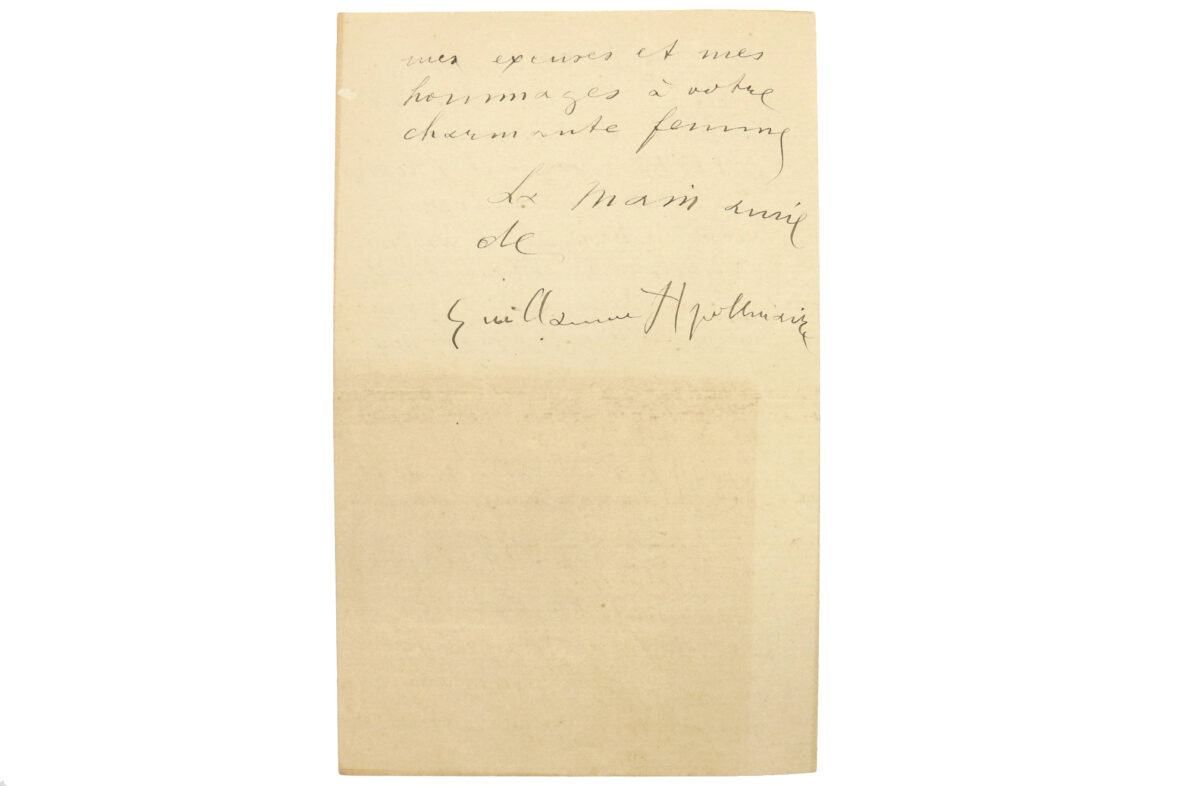 mes excuses et mes
hommages à votre
charmante femme
La main amie
de
Guillaume Apollinaire